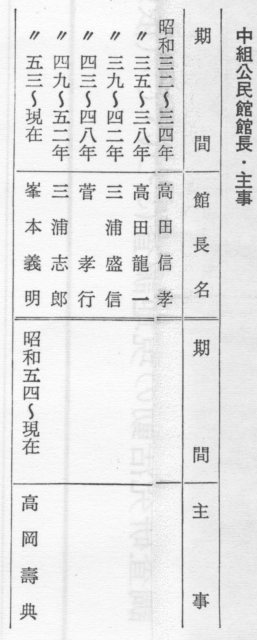 中組公民館館長・主事
期間 館長名 期間 主事
昭和三二〜三四年 高田信孝
〃 三五〜三八年 高田龍一
〃 三九〜四二年 三浦盛信
〃 四三〜四八年 菅孝行
〃 四九〜五二年 三浦志郎
〃 五三〜現在 峯本義明 昭和五四〜現在 高岡壽典